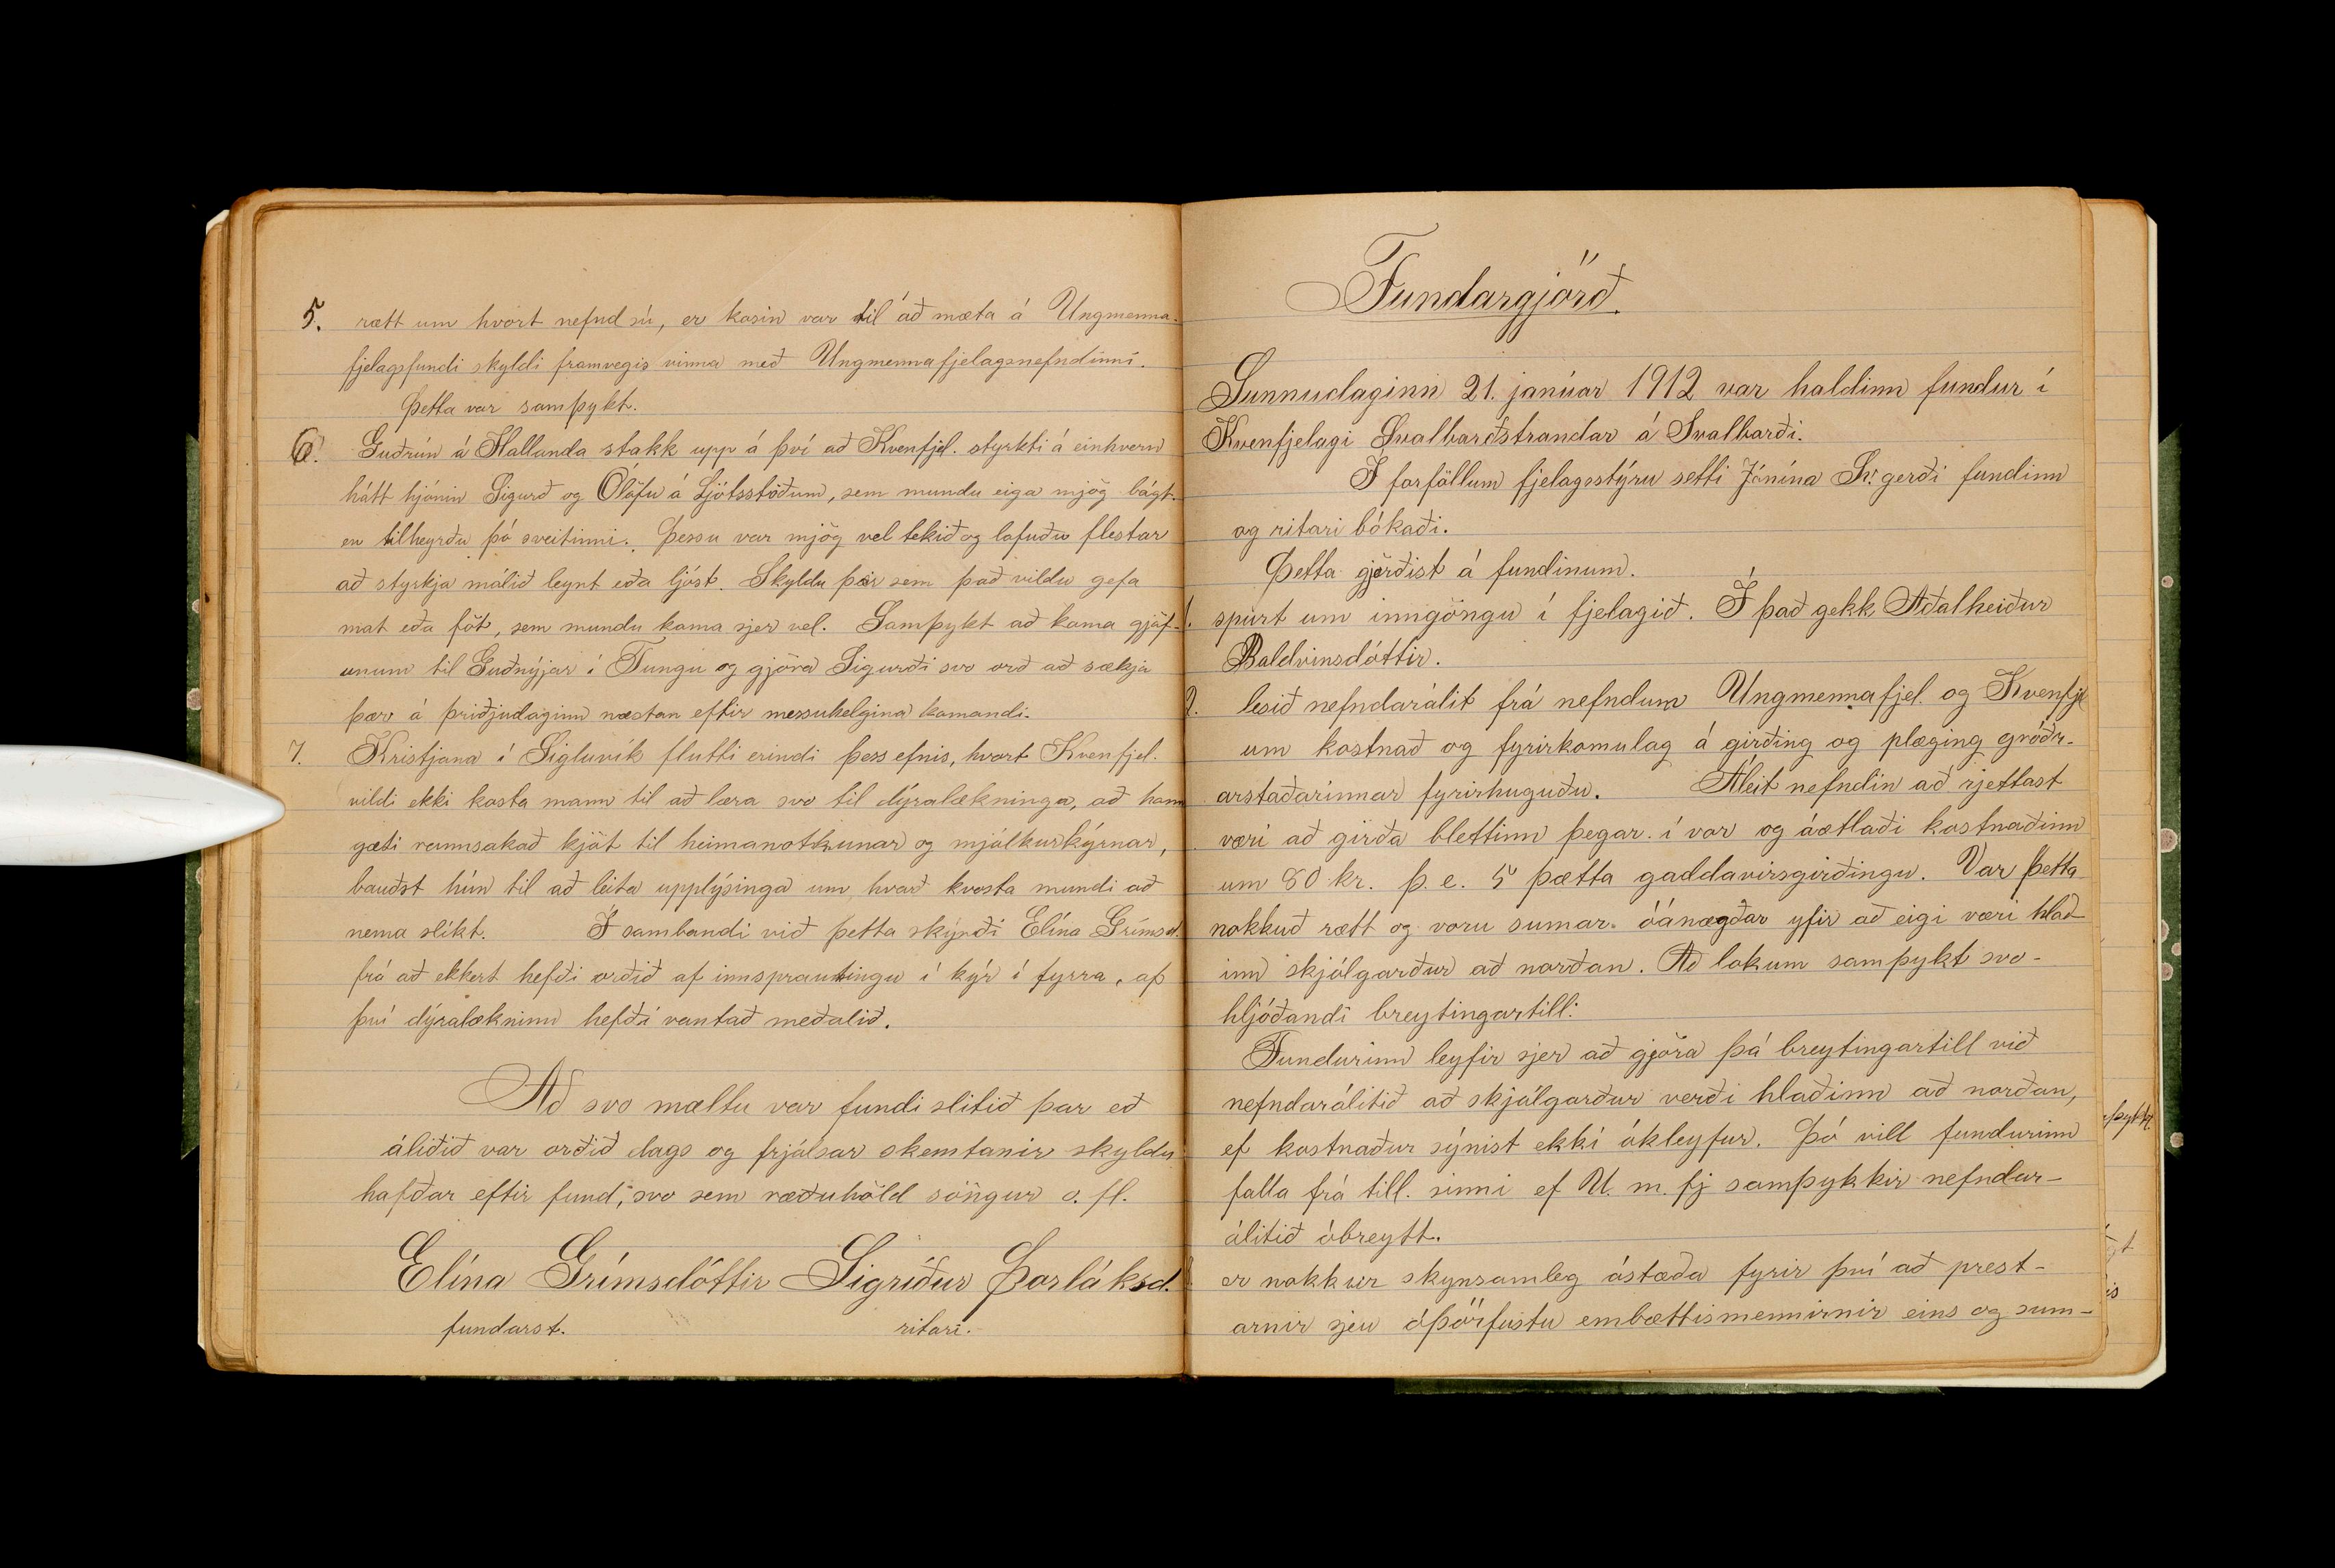 5. rætt um hvort nefnd sú, er kosin var til að mæta á Ungmenna-
fjelagsfundi skyldi framvegis vinna með Ungmennafjelagsnefndinni.
Þetta var samþykt.
6. Guðrún á Hallanda stakk upp á því að Kvenfjel. styrkti á einhvern
hátt hjónin Sigurð og Ólöfu á Ljótsstöðum, sem mundu eiga mjög bágt.
en tilheyrðu þó sveitinni. Þessu var mjög vel tekið og lofuðu flestar
að styrkja málið leynt eða ljóst. Skyldu þær sem það vildu gefa
mat eða föt, sem mundu koma sjer vel. Samþykt að koma gjöf-
unum til Guðnýjar í Tungu og gjöra Sigurði svo orð að sækja
þær á þriðjudaginn næstan eftir messuhelgina komandi.
7. Kristjana í Sigluvík flutti erindi þess efnis, hvort Kvenfjel.
vildi ekki kosta mann til að læra svo til dýralækninga, að hann
gæti rannsakað kjöt til heimanotkunar og mjólkurkýrnar,
bauðst hún til að leita upplýsinga um, hvað kosta mundi að
nema slíkt. Í sambandi við þetta skýrði Elína Grímsd.
frá að ekkert hefði orðið af innsprautingu í kýr í fyrra, af
því dýralækninn hefði vantað meðalið.
Að svo mæltu var fundi slitið þar eð
áliðið var orðið dags og frjálsar skemtanir skyldu
hafðar eftir fund, svo sem ræðuhöld söngur o. fl.
Elína Grímsdóttir Sigríður Þorláksd.
fundarst. ritari.
Fundargjörð.
Sunnudaginn 21. janúar 1912 var haldinn fundur í
Kvenfjelagi Svalbarðstrandar á Svalbarði.
Í forföllum fjelagsstýru setti Jónína Sv.gerði fundinn
og ritari bókaði.
Þetta gjörðist á fundinum.
1. spurt um inngöngu í fjelagið. Í það gekk Aðalheiður
Baldvinsdóttir.
2. lesið nefndarálit frá nefndum Ungmennafjel. og Kvenfjel
um kostnað og fyrirkomulag á girðing og plæging gróðr-
arstaðarinnar fyrirhuguðu. Áleit nefndin að rjettast
væri að girða blettinn þegar í vor og áætlaði kostnaðinn
um 80 kr. þ. e. 5 þætta gaddavírsgirðingu. Var þetta
nokkuð rætt og voru sumar óánægðar yfir að eigi væri hlað-
inn skjólgarður að norðan. Að lokum samþykt svo-
hljóðandi breytingartill:
Fundurinn leyfir sjer að gjöra þá breytingartill við
nefndarálitið að skjólgarður verði hlaðinn að norðan,
ef kostnaður sýnist ekki ókleyfur. Þó vill fundurinn
falla frá till. sinni ef U. m. fj samþykkir nefndar-
álitið óbreytt.
er nokkur skynsamleg ástæða fyrir því að prest-
arnir sjeu óþörfustu embættismennirnir eins og sum-